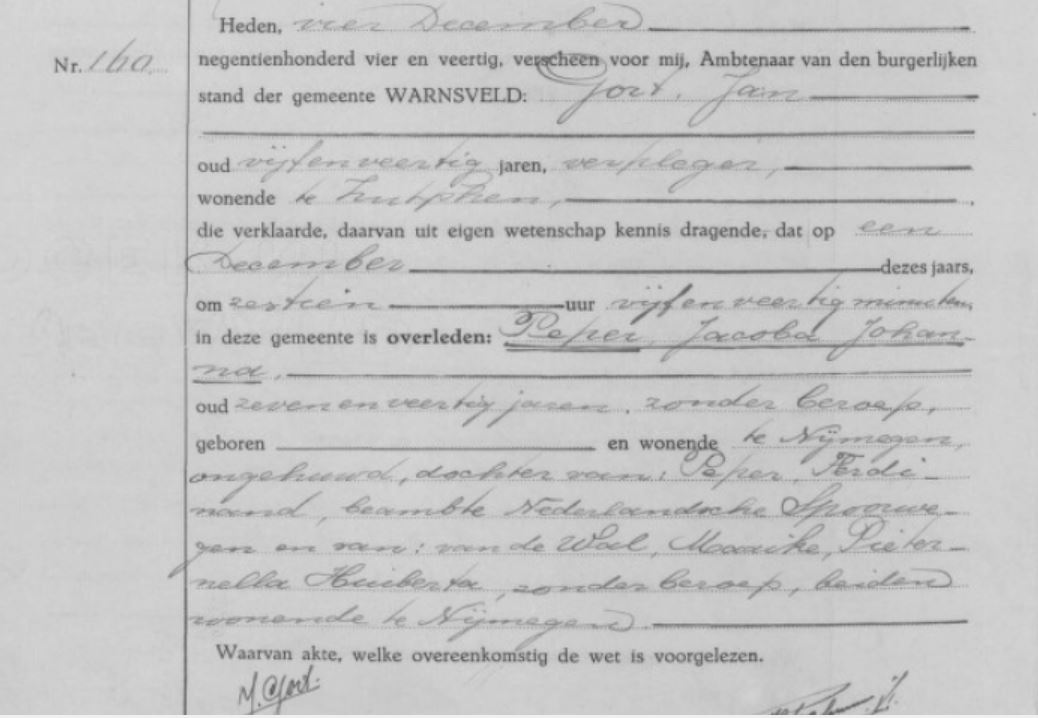 Heden, vier December
Nr. 160
negentienhonderd vier en veertig, verscheen voor mij, Ambtenaar van den burgerlijken
stand der gemeente WARNSVELD: Gort, Jan
oud vijfenveertig jaren, verpleger,
wonende te Zutphen,
die verklaarde, daarvan uit eigen wetenschap kennis dragende, dat op een
December dezes jaars,
om zestien uur vijfenveertig minuten,
in deze gemeente is overleden: Peper, Jacoba Johan-
na,
oud zevenenveertig jaren, zonder beroep,
geboren en wonende te Nijmegen,
ongehuwd, dochter van: Peper, Ferdi-
nand, beambte Nederlandsche Spoorwe-
gen en van: van de Wal, Maaike, Pieter-
nella Huiberta, zonder beroep, beiden
wonende te Nijmegen.
Waarvan akte, welke overeenkomstig de wet is voorgelezen.
J. Gort.